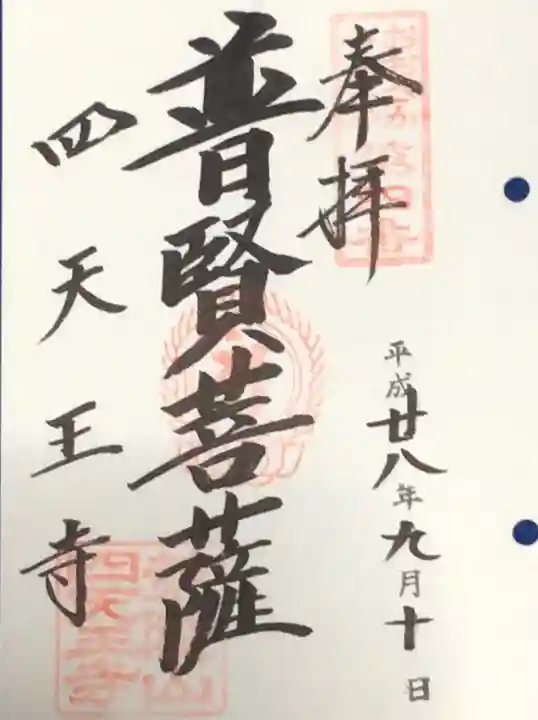 奉拝
平成廿八年九月十日
普賢菩薩
四天王寺